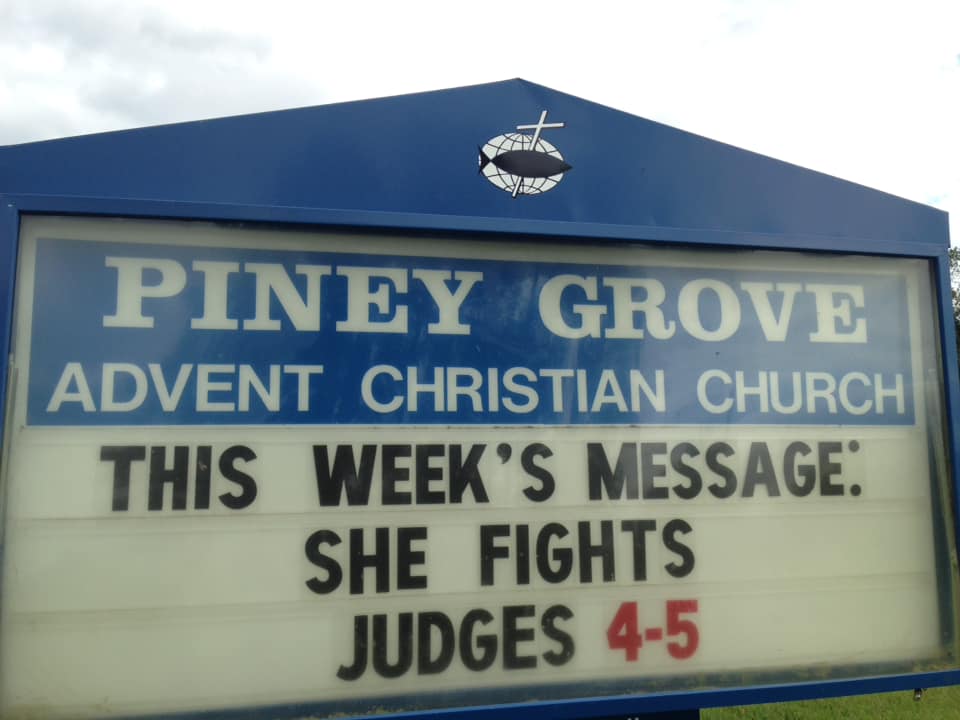 PINEY GROVE
ADVENT CHRISTIAN CHURCH
THIS WEEK'S MESSAGE:
SHE FIGHTS
JUDGES 4-5